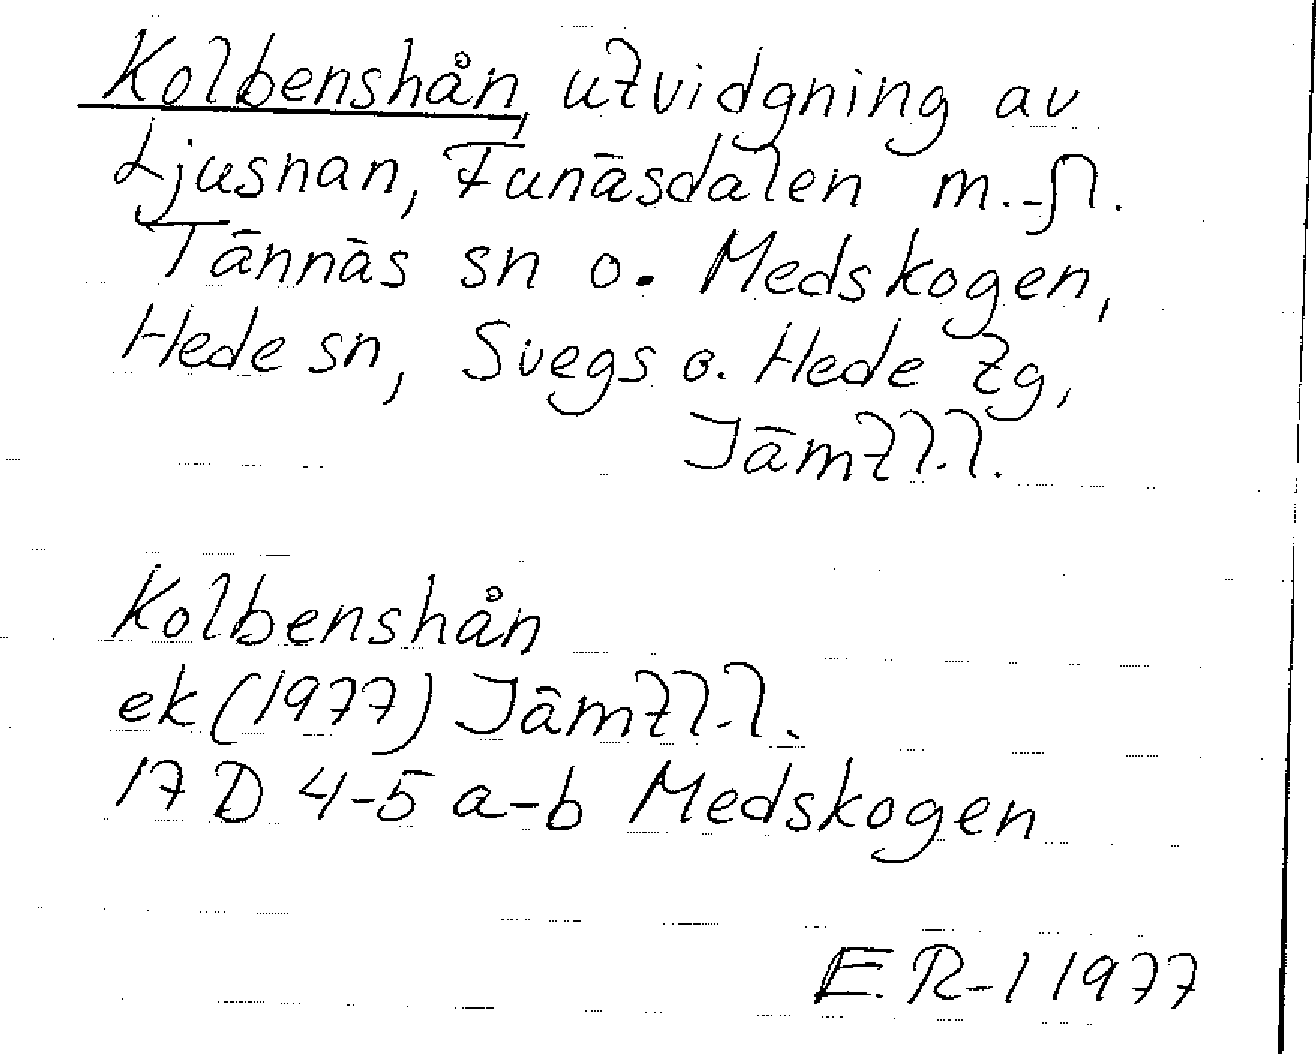 Kolbenshån, utvidgning av
Ljusnan, Funäsdalen m.fl.
Tännäs sn o. Medskogen,
Hede sn, Svegs o. Hede tg,
Jämtl.l.
Kolbenshån
ek (1977) Jämtl.l.
17 D 4-5 a-b Medskogen
E.R-l 1977